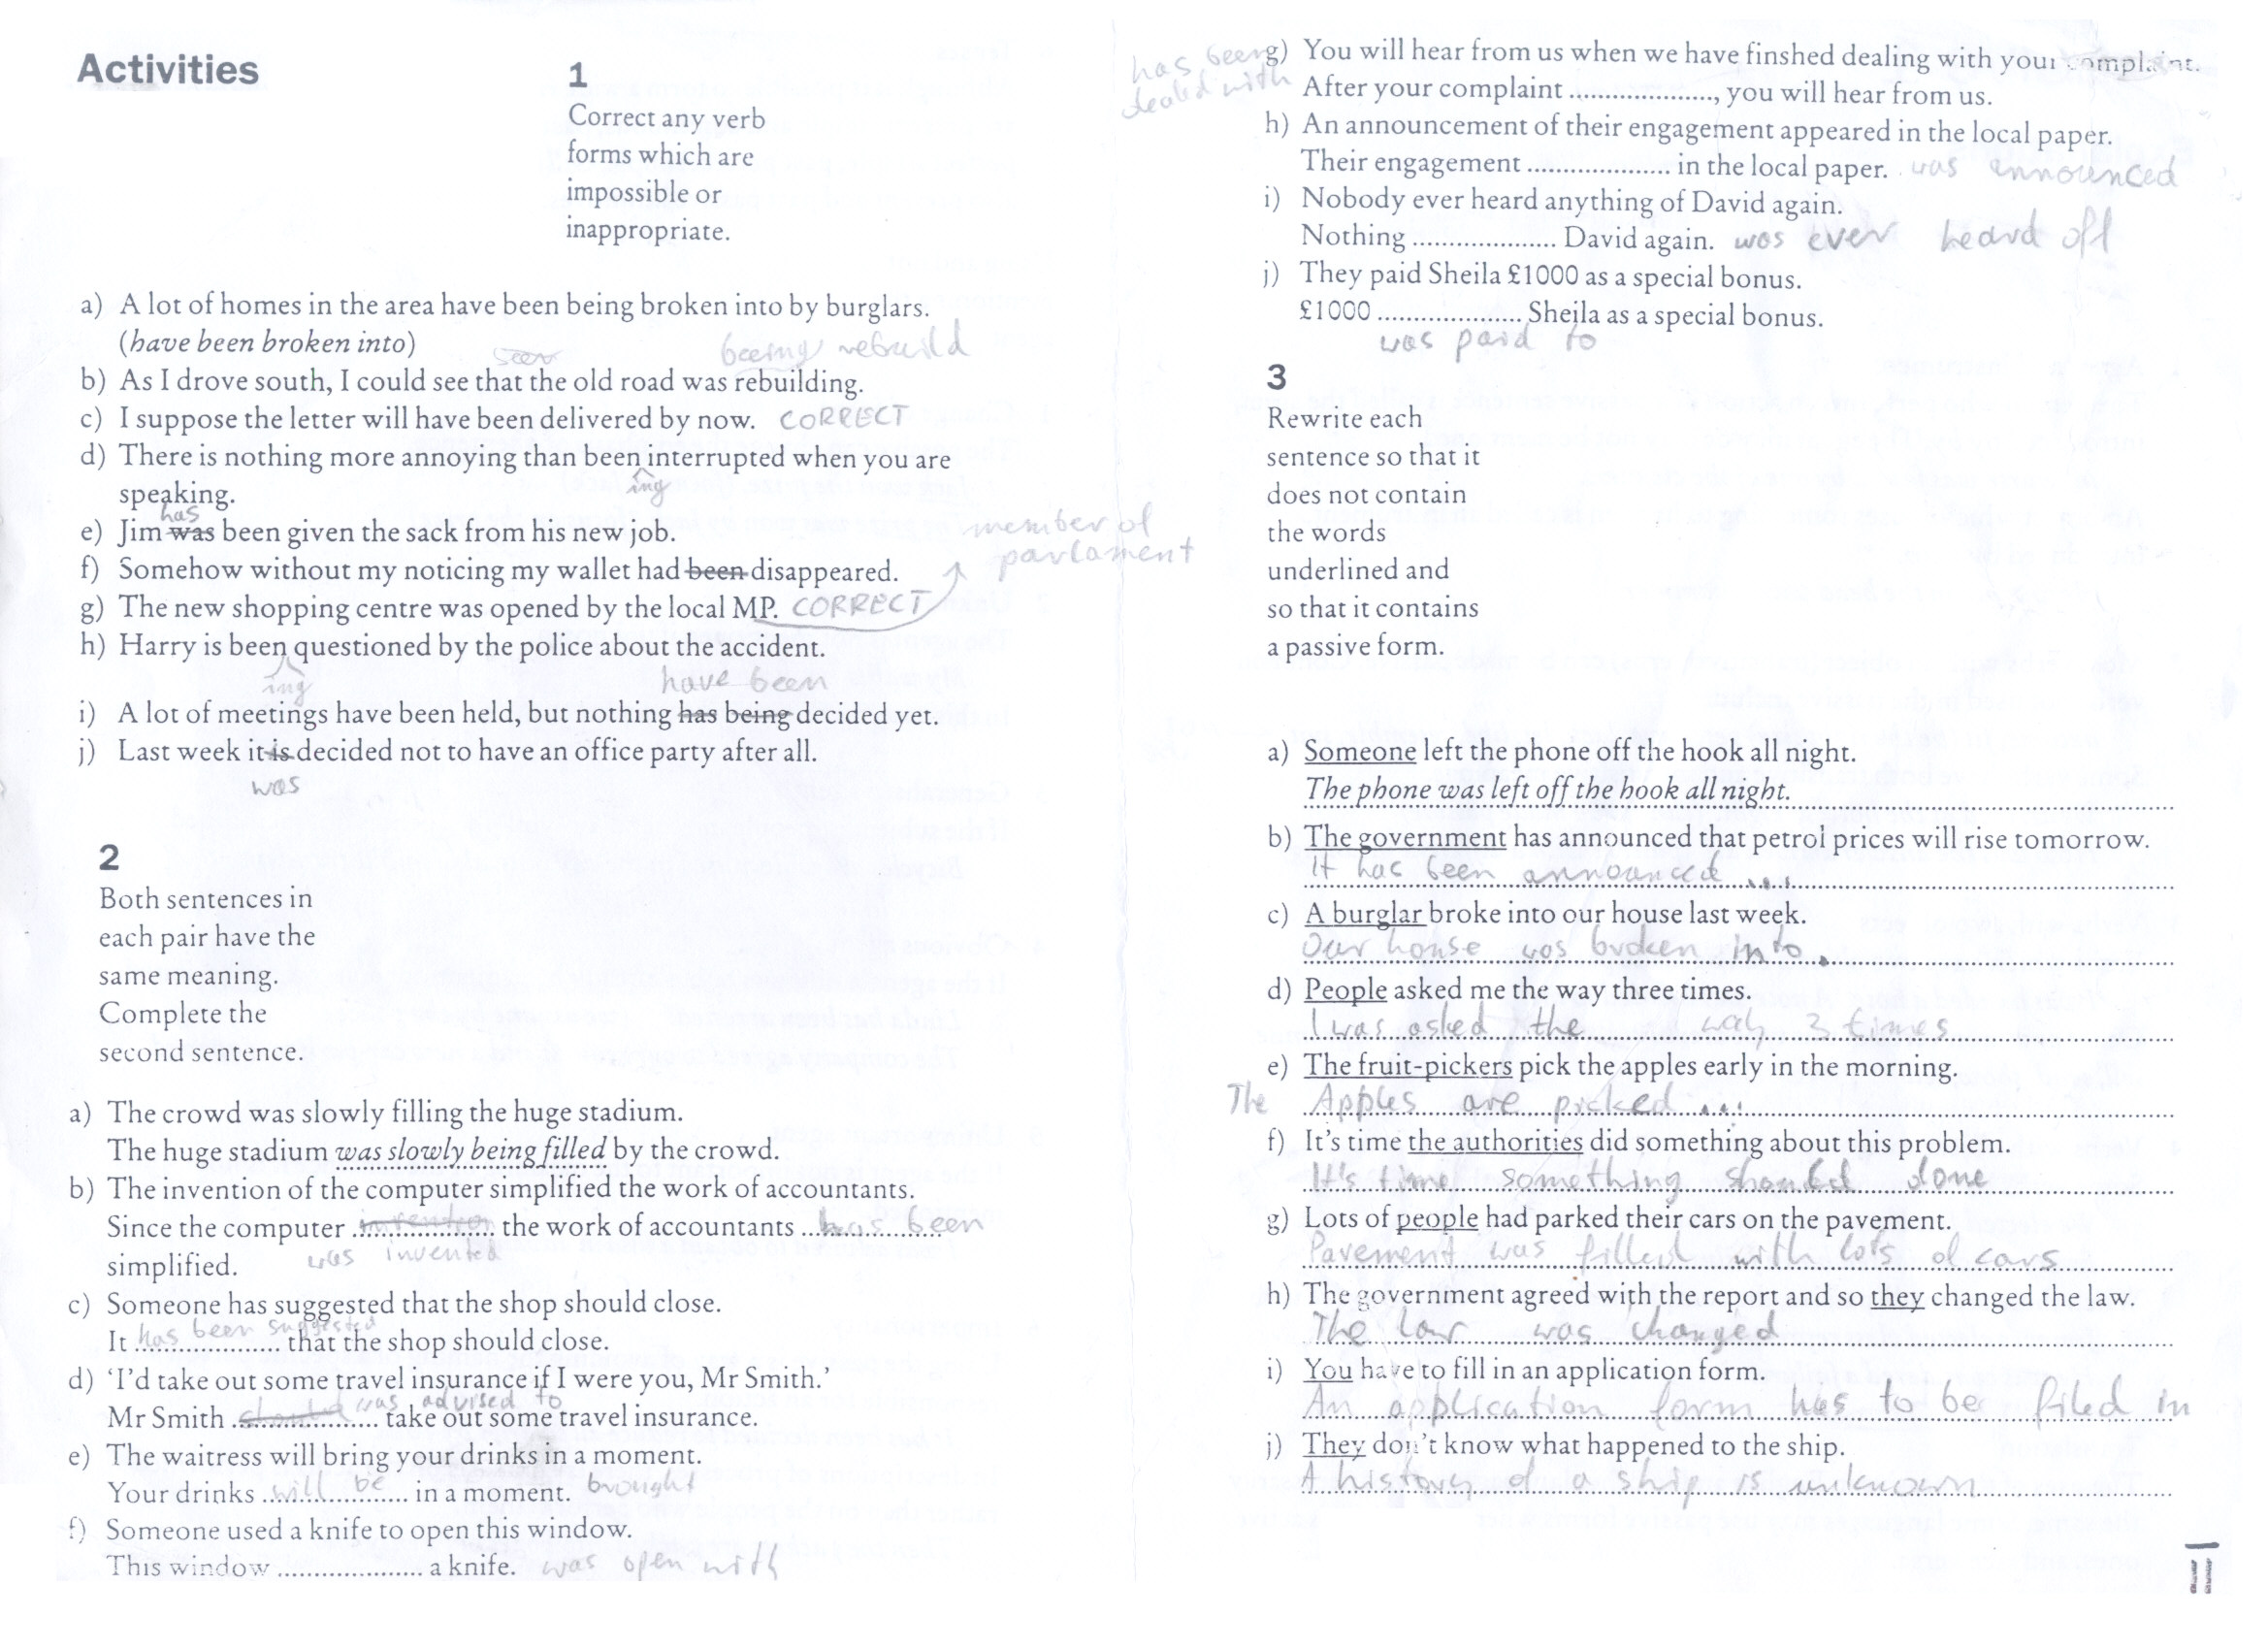 Activities
1
Correct any verb
forms which are
impossible or
inappropriate.
a) A lot of homes in the area have been being broken into by burglars.
(have been broken into)
seen
beeing rebuild
b) As I drove south, I could see that the old road was rebuilding.
c) I suppose the letter will have been delivered by now. CORRECT
d) There is nothing more annoying than been interrupted when you are
ing
speaking.
has
e) Jim was been given the sack from his new job.
member of
parlament
f) Somehow without my noticing my wallet had been disappeared.
g) The new shopping centre was opened by the local MP. CORRECT
h) Harry is been questioned by the police about the accident.
ing
have been
i) A lot of meetings have been held, but nothing has being decided yet.
j) Last week it is decided not to have an office party after all.
was
2
Both sentences in
each pair have the
same meaning.
Complete the
second sentence.
a) The crowd was slowly filling the huge stadium.
The huge stadium was slowly being filled by the crowd.
b) The invention of the computer simplified the work of accountants.
Since the computer invention the work of accountants has been
simplified. was invented
c) Someone has suggested that the shop should close.
It has been suggested that the shop should close.
d) ‘I’d take out some travel insurance if I were you, Mr Smith.’
Mr Smith should was advised to take out some travel insurance.
e) The waitress will bring your drinks in a moment.
Your drinks will be in a moment. brought
f) Someone used a knife to open this window.
This window .................... a knife. was open with
has been
dealed with
g) You will hear from us when we have finshed dealing with your complaint.
After your complaint ...................., you will hear from us.
h) An announcement of their engagement appeared in the local paper.
Their engagement .................... in the local paper. was announced
i) Nobody ever heard anything of David again.
Nothing .................... David again. was ever heard off
j) They paid Sheila £1000 as a special bonus.
£1000 .................... Sheila as a special bonus.
was paid to
3
Rewrite each
sentence so that it
does not contain
the words
underlined and
so that it contains
a passive form.
a) Someone left the phone off the hook all night.
The phone was left off the hook all night.
b) The government has announced that petrol prices will rise tomorrow.
It has been announced ...
c) A burglar broke into our house last week.
Our house was broken into.
d) People asked me the way three times.
I was asked the way 3 times
e) The fruit-pickers pick the apples early in the morning.
The Apples are picked ...
f) It’s time the authorities did something about this problem.
It's time something should done
g) Lots of people had parked their cars on the pavement.
Pavement was filled with lots of cars
h) The government agreed with the report and so they changed the law.
The law was changed
i) You have to fill in an application form.
An application form has to be filed in
j) They don’t know what happened to the ship.
A history of a ship is unknown
11